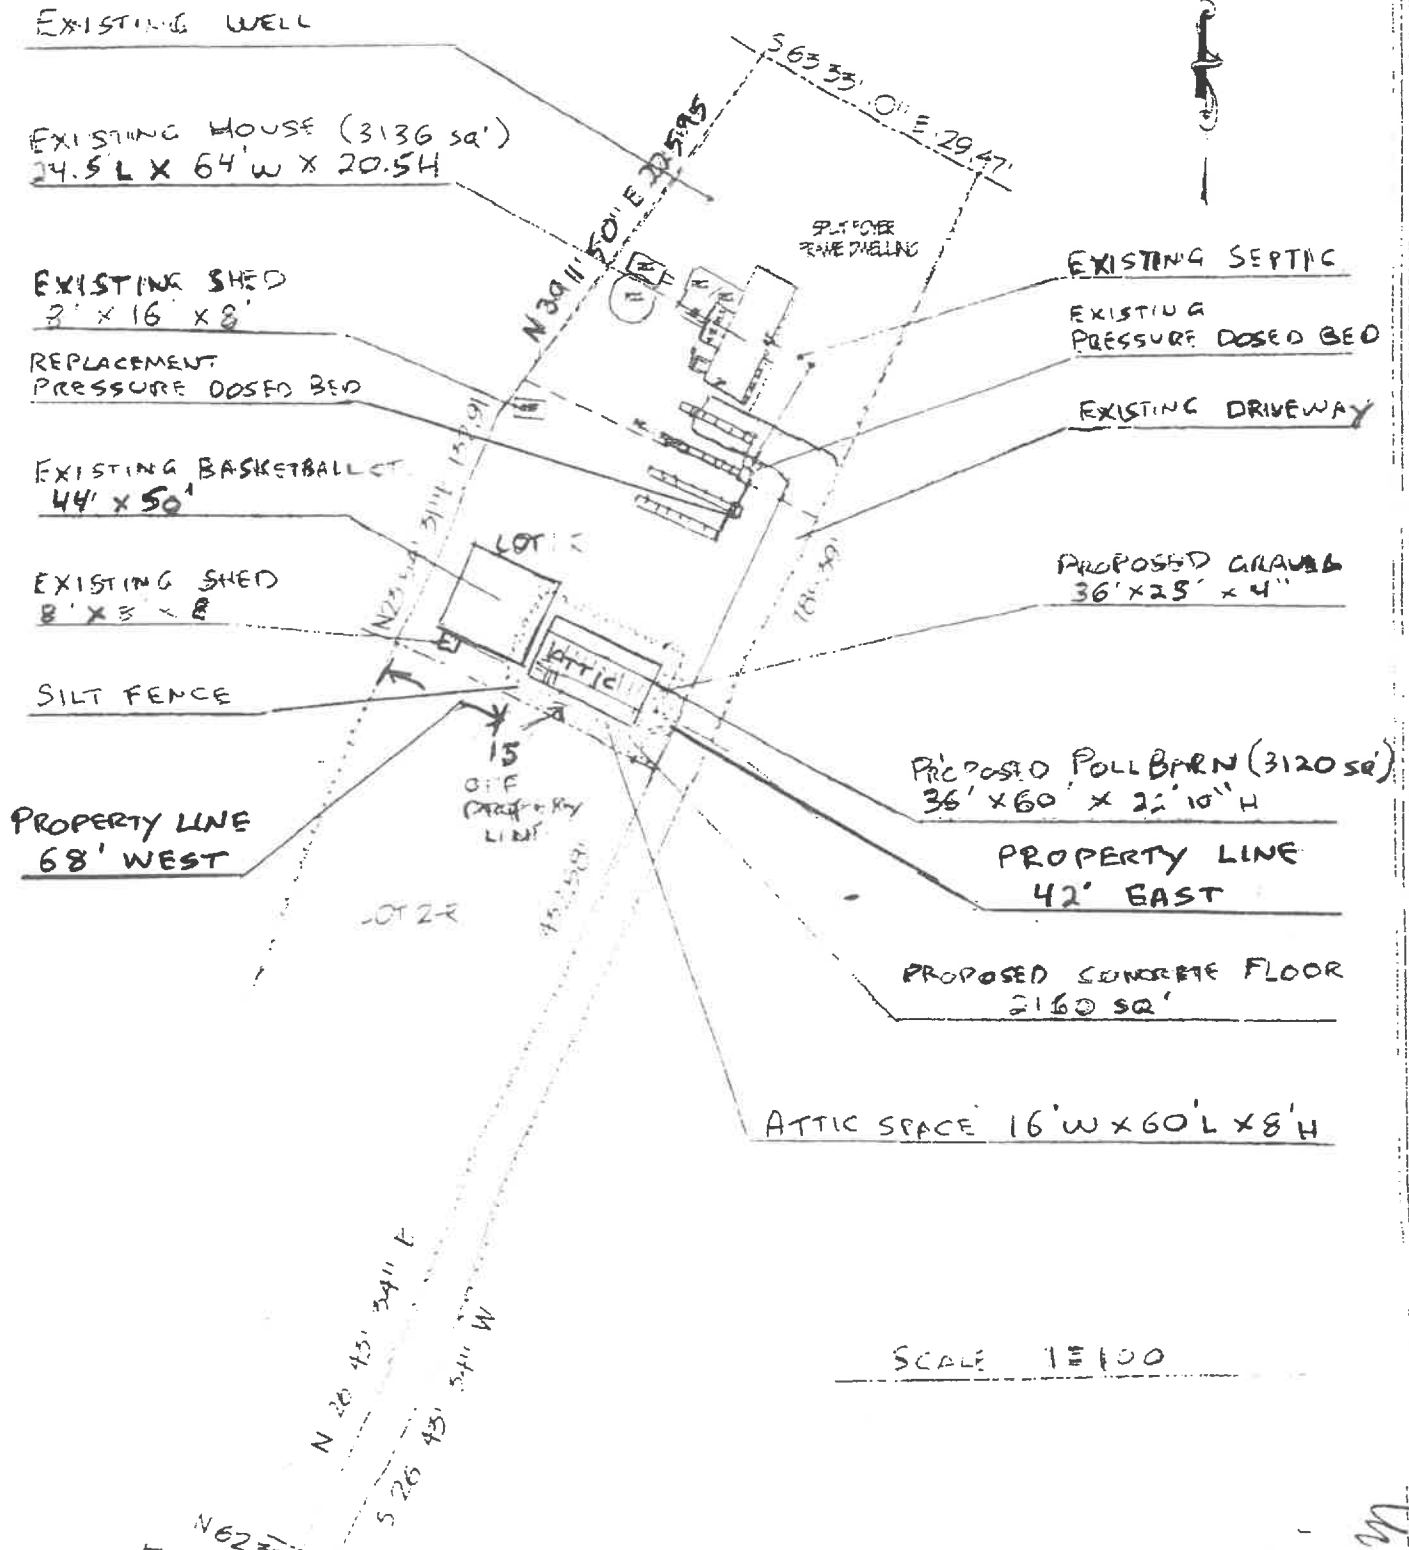 EXISTING WELL
EXISTING HOUSE (3136 SQ')
24.5'L X 64'W X 20.5H
EXISTING SHED
X 16' X 8'
REPLACEMENT
PRESSURE DOSED BED
EXISTING BASKETBALL CT.
44' X 50'
EXISTING SHED
8' X
SILT FENCE
PROPERTY LINE
68' WEST
N 39 11' 50" E 225.95
S 63 33' 0" E 29.47'
SPLIT FOYER
FRAME DWELLING
EXISTING SEPTIC
EXISTING
PRESSURE DOSED BED
EXISTING DRIVEWAY
PROPOSED GRAVEL
36' X 25' X 4"
LOT
ATTIC
15
OFF
LINE
PROPOSED POLL BARN (3120 SQ')
36' X 60' X 10" H
PROPERTY LINE
42' EAST
LOT 2-R
PROPOSED CONCRETE FLOOR
2160 SQ'
ATTIC SPACE 16'W X 60'L X 8'H
N 26 43' 54" E
S 26 43' 54" W
SCALE 1=100
N 62